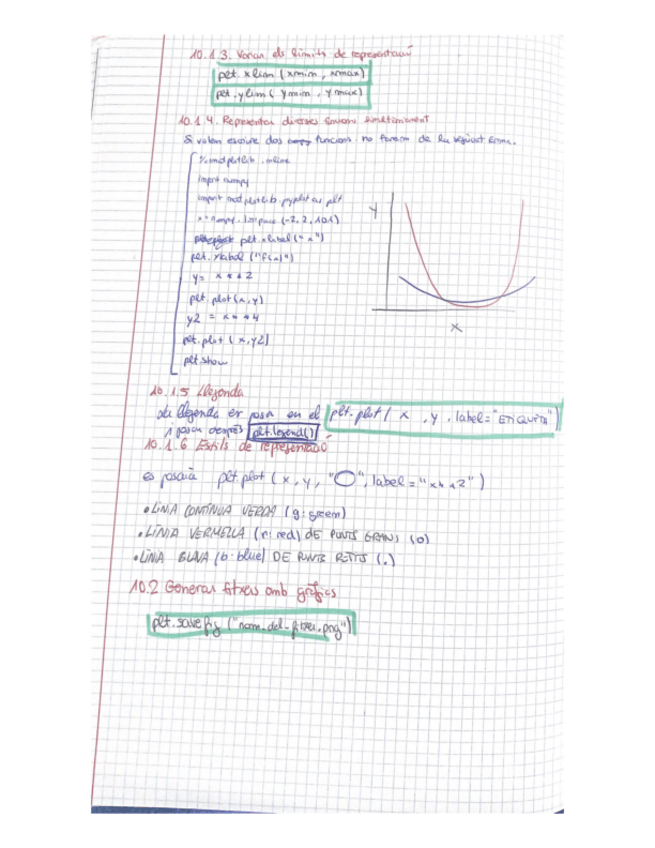 10.1.3. Variar els límits de representació
plt.xlim (xmin, xmax)
plt.ylim ( ymin, ymax)
10.1.4. Representar diverses funcions simultàniament
Si volem escriure dos funcions ho farem de la següent forma.
% matplotlib inline
import numpy
import matplotlib.pyplot as plt
x = numpy.linspace (-2, 2, 101)
plt.xlabel ("x")
plt.ylabel ("f(x)")
y = x**2
plt.plot (x, y)
y2 = x**4
plt.plot (x, y2)
plt.show
Y
X
10.1.5 Llegenda
La llegenda es posa en el plt.plot ( x , y , label = "ETIQUETA")
i posem després plt.legend()
10.1.6 Estils de representació
es posaria plt.plot ( x , y , "O", label = "x**2" )
• LÍNIA CONTÍNUA VERDA (g: green)
• LÍNIA VERMELLA (r: red) DE PUNTS GRANS (o)
• LÍNIA BLAVA (b: blue) DE PUNTS PETITS (.)
10.2 Generar fitxers amb gràfics
plt.savefig ("nom_del_fitxer.png")